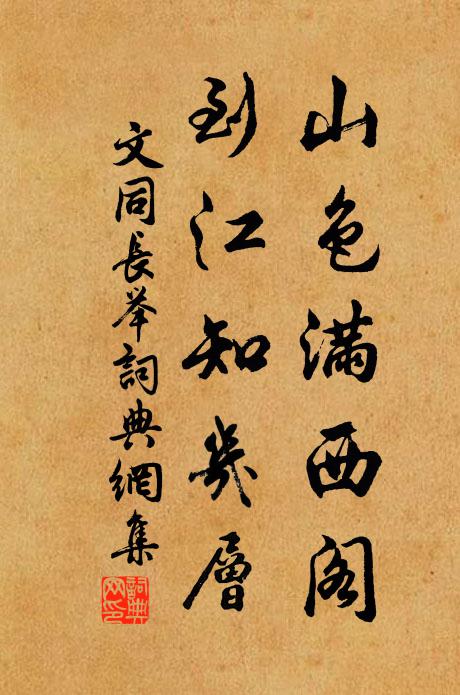 山色滿西阁
到江知幾層
文同長举詞典網集
詞典網印